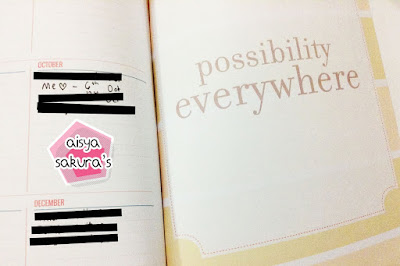 OCTOBER
Me ♡ - 6th Oct
aisya
sakura's
DECEMBER
possibility
everywhere